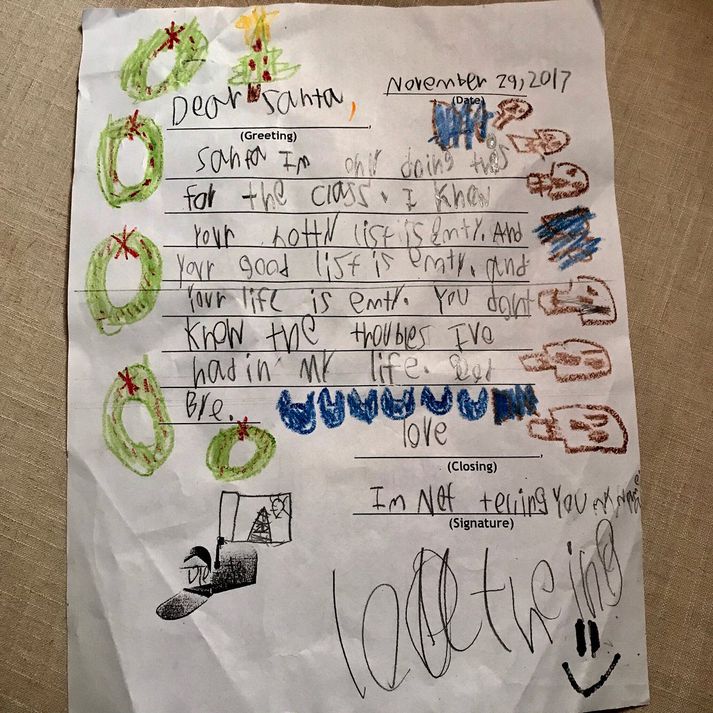 November 29, 2017
(Date)
Dear Santa,
(Greeting)
Santa Im only doing this
for the class. I Know
Your notty list is emty. And
Your good list is emty. and
Your life is emty. You dont
Know the thoubles Ive
had in my life. Good
Bye.
love
(Closing)
Im Not telling you my name
(Signature)